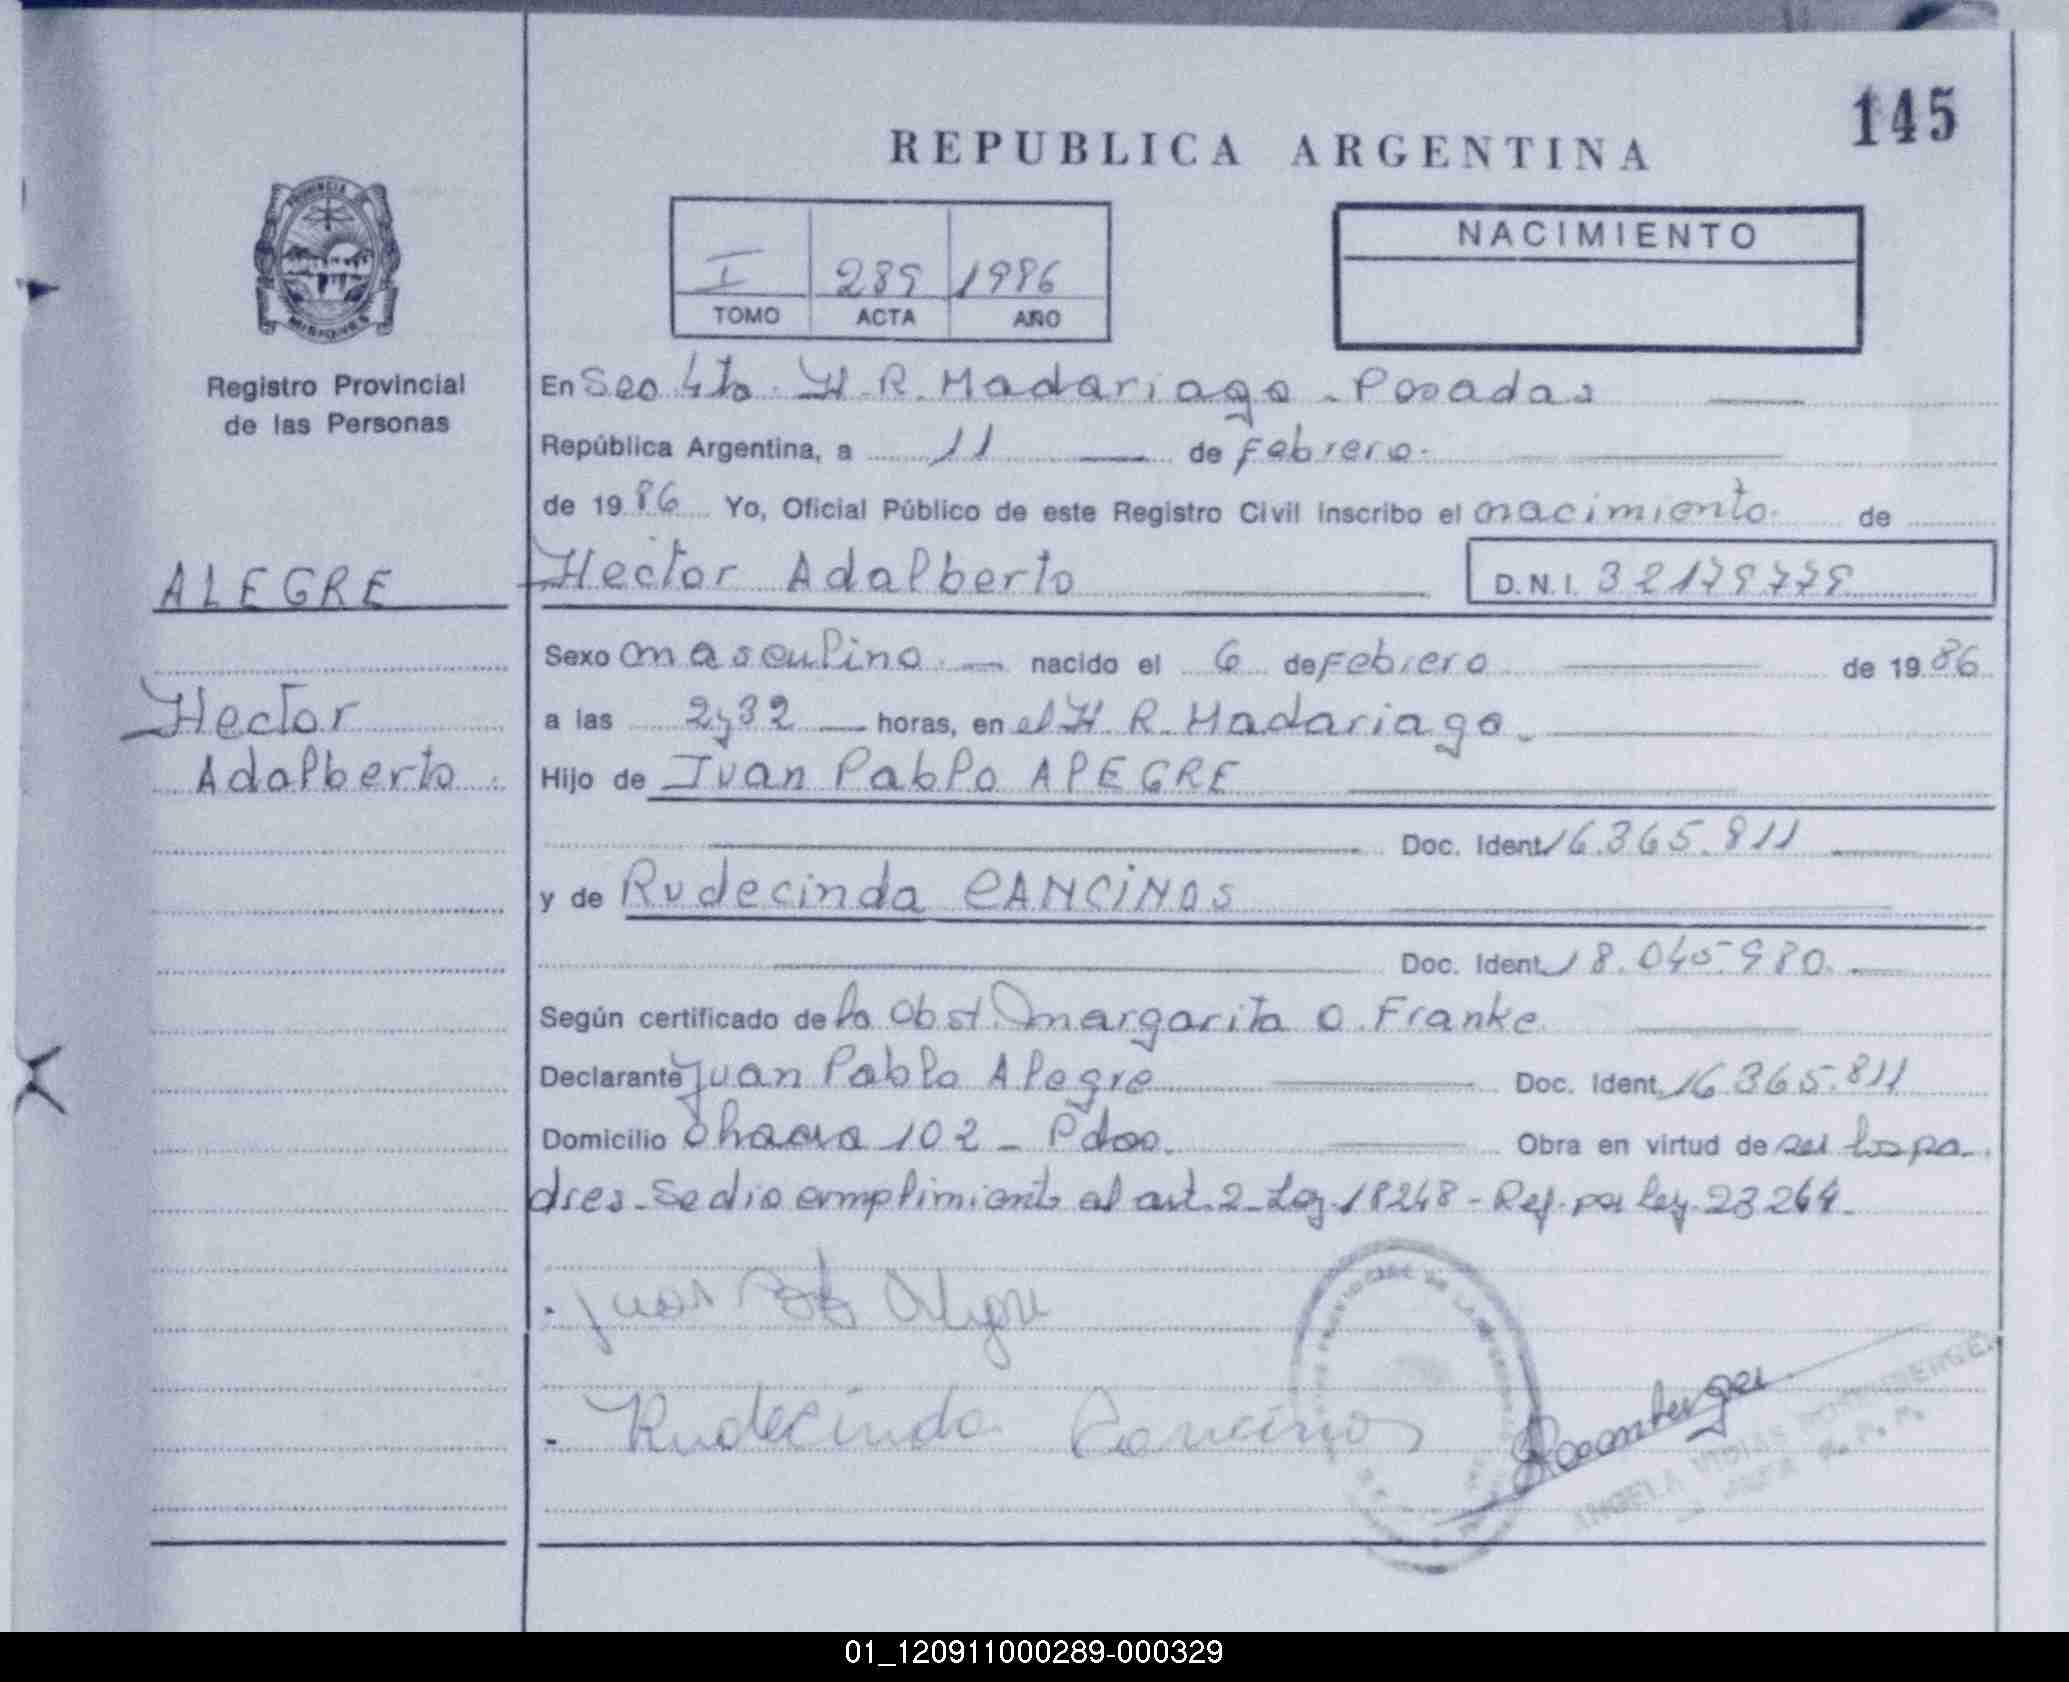 145
REPUBLICA ARGENTINA
PROVINCIA DE
MISIONES
Registro Provincial
de las Personas
I 289 1986
TOMO ACTA AÑO
NACIMIENTO
En Sec 4ta. H. R. Madariaga - Posadas
República Argentina, a 11 de Febrero.
de 1986 Yo, Oficial Público de este Registro Civil inscribo el nacimiento de
ALEGRE
Hector Adalberto
D.N.I. 32179779
Hector
Adalberto
Sexo masculino nacido el 6 de Febrero de 1986
a las 2,32 horas, en el H. R. Madariaga.
Hijo de Juan Pablo ALEGRE
Doc. Ident. 16.365.811
y de Rudecinda CANCINOS
Doc. Ident. 18.045.980.
Según certificado de la Obst. Margarita O. Franke
Declarante Juan Pablo Alegre Doc. Ident. 16.365.811
Domicilio Chacra 102 - Pdas. Obra en virtud de ser los pa-
dres - Se dio cumplimiento al art. 2 - Ley. 18248 - Ref. por ley. 23264.
Juan Pablo Alegre
Rudecinda Cancinos
Rosemberger
01_120911000289-000329